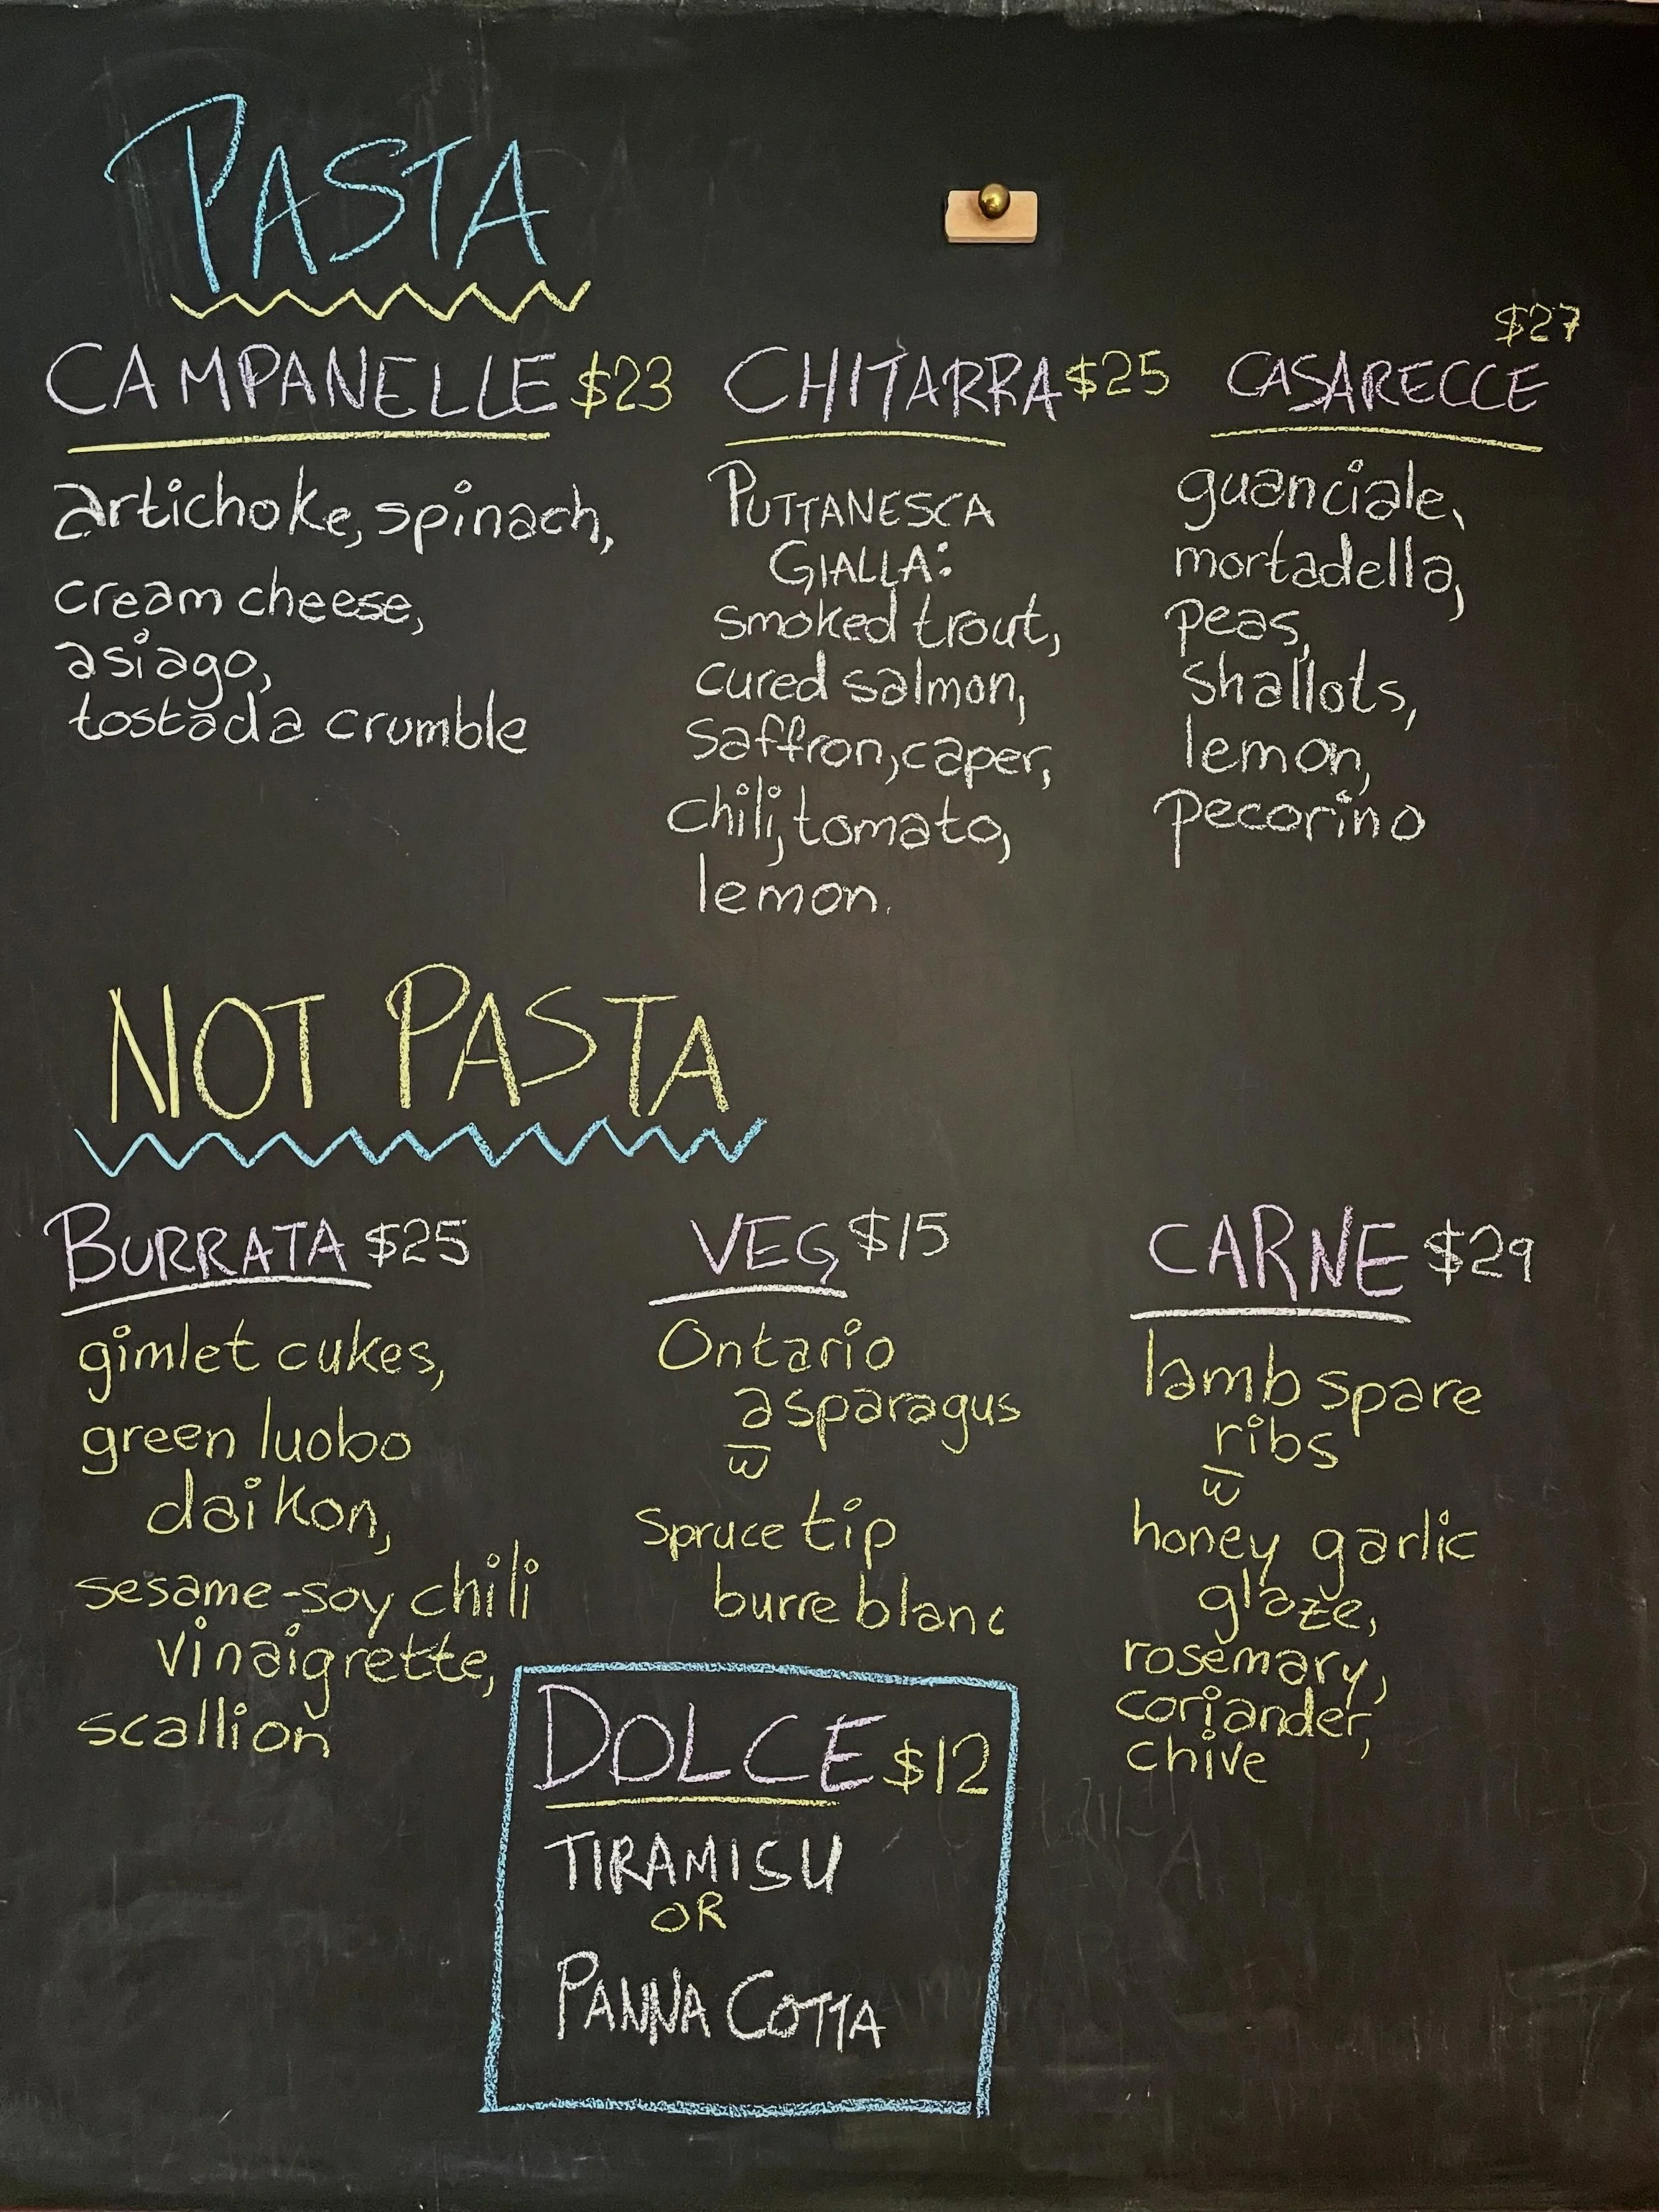 PASTA
CAMPANELLE $23
artichoke, spinach,
cream cheese,
asiago,
tostada crumble
CHITARRA $25
PUTTANESCA
GIALLA:
smoked trout,
cured salmon,
saffron, caper,
chili, tomato,
lemon.
$27
CASARECCE
guanciale,
mortadella,
peas,
shallots,
lemon,
pecorino
NOT PASTA
BURRATA $25
gimlet cukes,
green luobo
daikon,
sesame-soy chili
vinaigrette,
scallion
VEG $15
Ontario
asparagus
w̅
Spruce tip
burre blanc
CARNE $29
lamb spare
ribs
w̅
honey garlic
glaze,
rosemary,
coriander,
chive
DOLCE $12
TIRAMISU
OR
PANNA COTTA